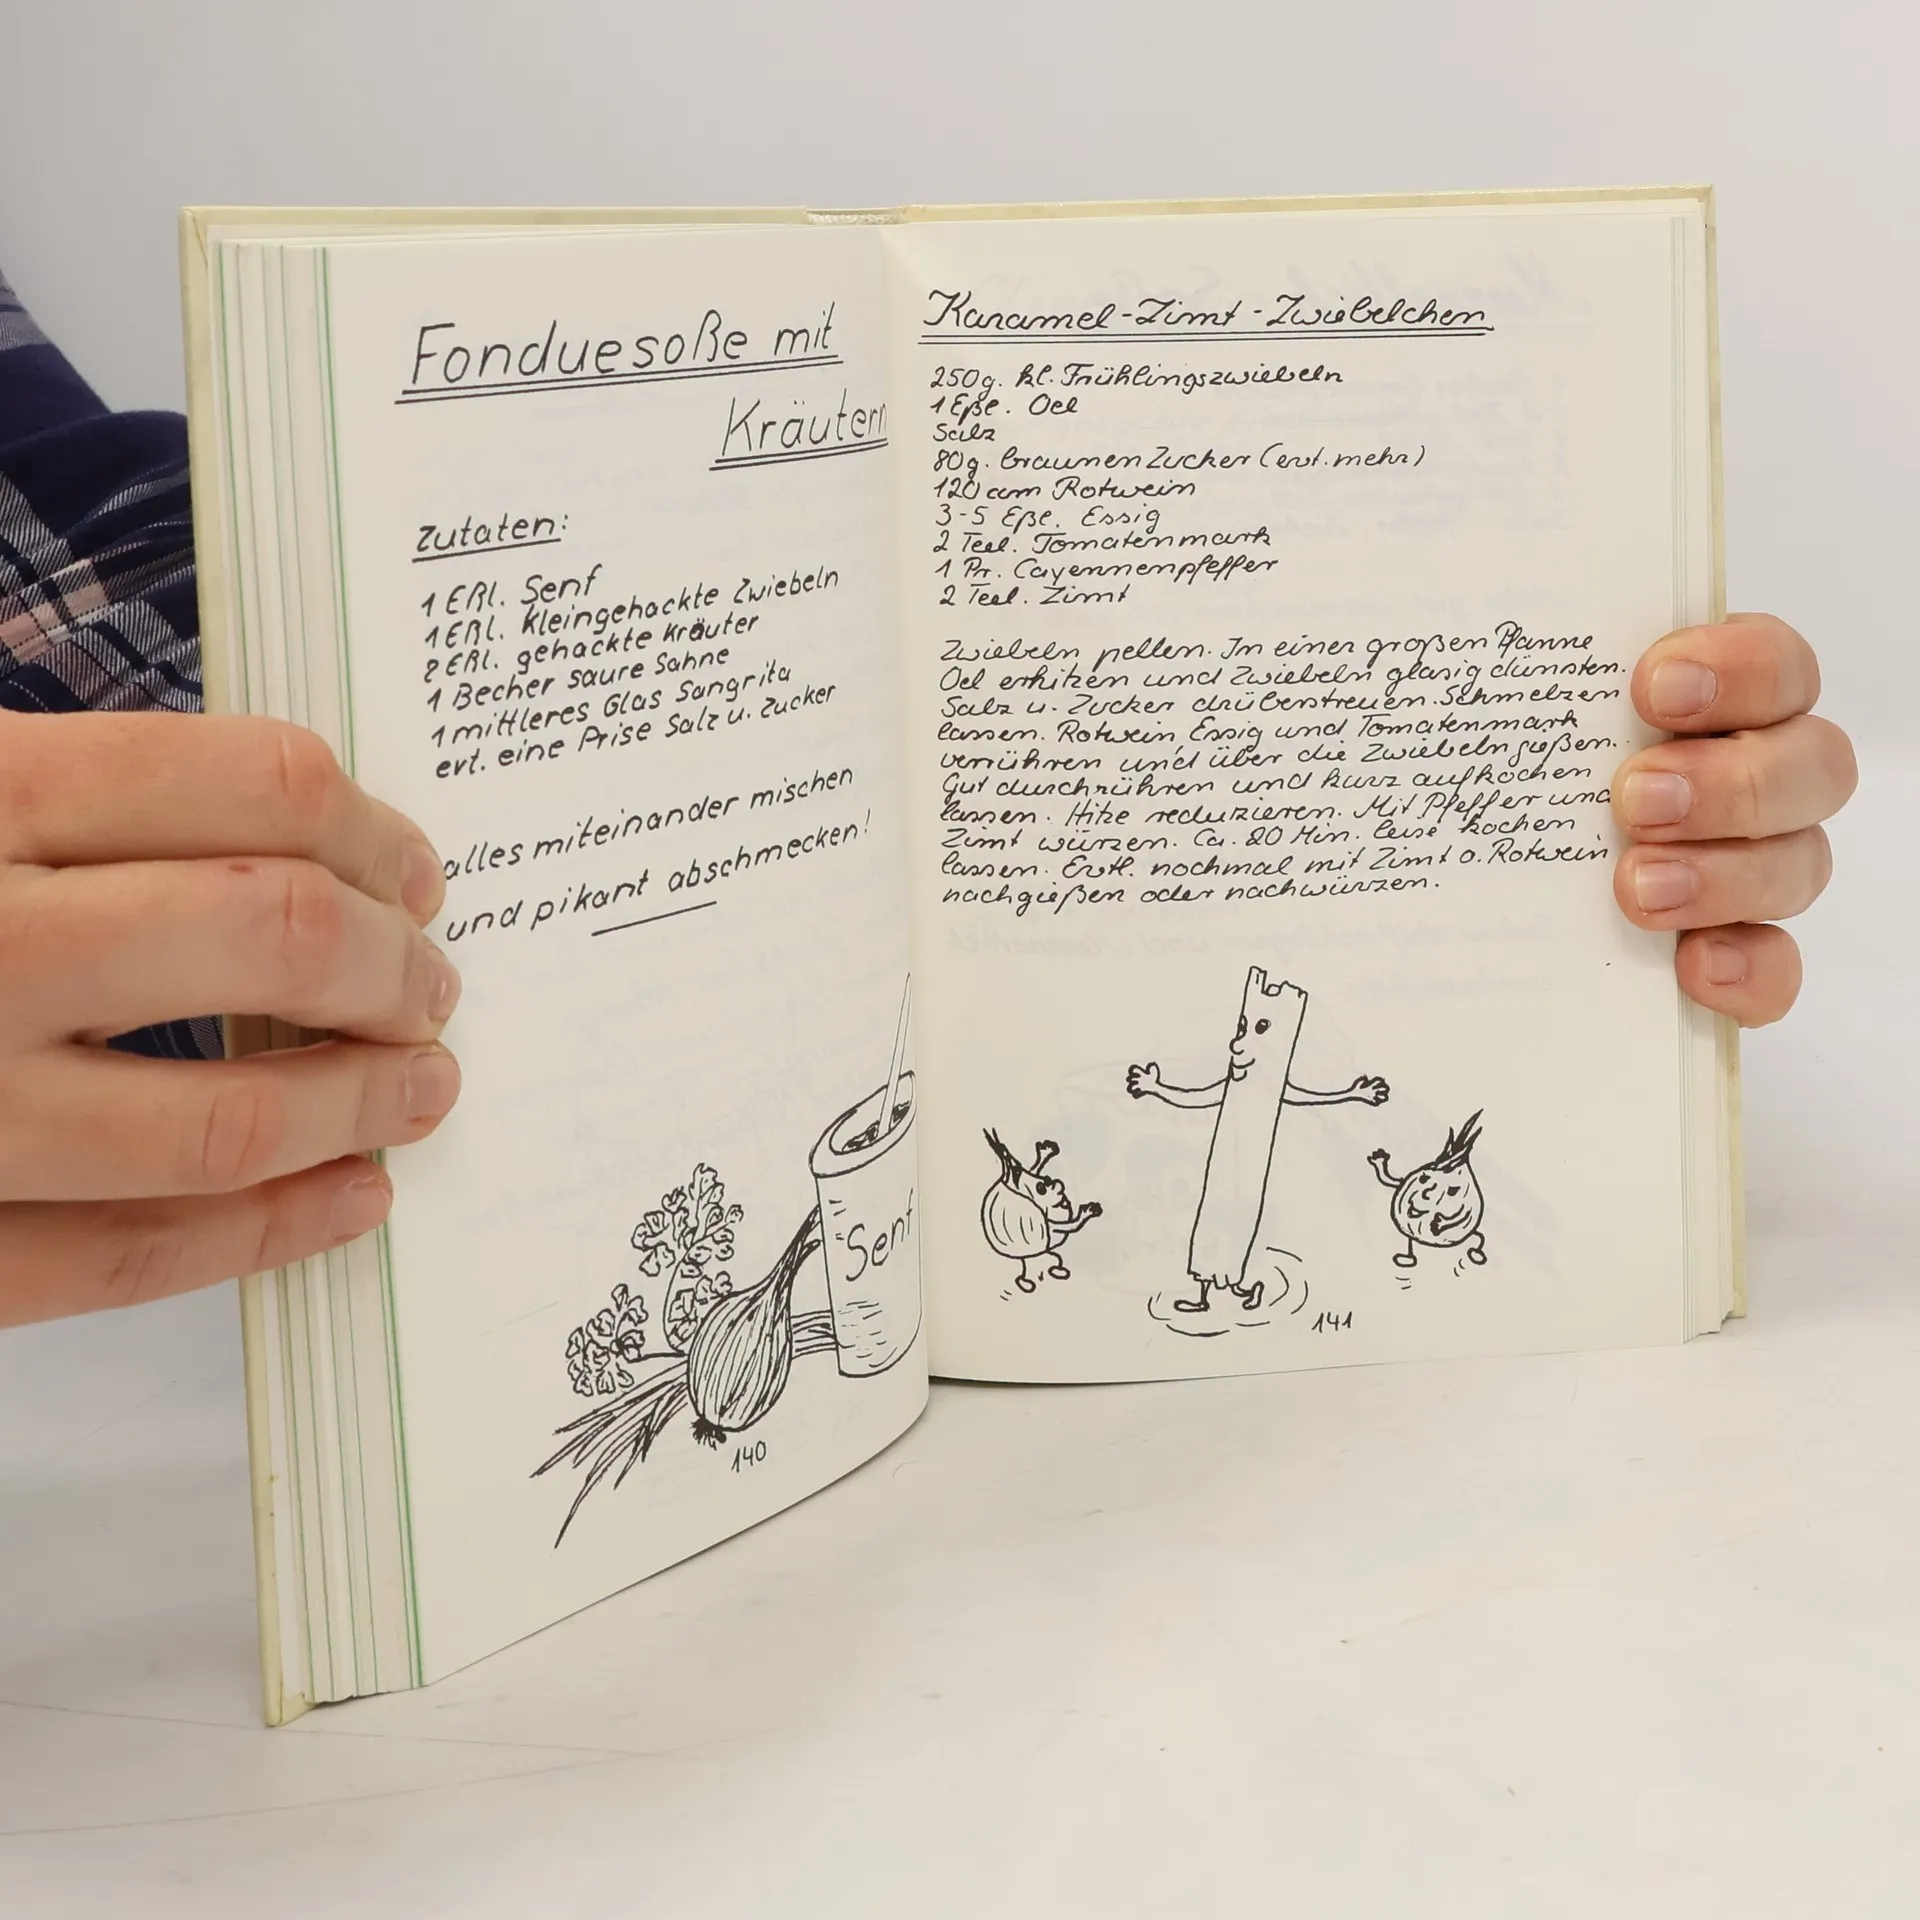 Fonduesoße mit
Kräutern
Zutaten:
1 Eßl. Senf
1 Eßl. kleingehackte Zwiebeln
2 Eßl. gehackte Kräuter
1 Becher saure Sahne
1 mittleres Glas Sangrita
evt. eine Prise Salz u. Zucker
alles miteinander mischen
und pikant abschmecken!
Senf
140
Karamel-Zimt-Zwiebelchen
250g. kl. Frühlingszwiebeln
1 Eßl. Oel
Salz
80g. braunen Zucker (evt. mehr)
120 ccm Rotwein
3-5 Eßl. Essig
2 Teel. Tomatenmark
1 Pr. Cayennenpfeffer
2 Teel. Zimt
Zwiebeln pellen. In einer großen Pfanne
Oel erhitzen und Zwiebeln glasig dünsten.
Salz u. Zucker drüberstreuen. Schmelzen
lassen. Rotwein, Essig und Tomatenmark
verrühren und über die Zwiebeln gießen.
Gut durchrühren und kurz aufkochen
lassen. Hitze reduzieren. Mit Pfeffer und
Zimt würzen. Ca. 20 Min. leise kochen
lassen. Evtl. nochmal mit Zimt o. Rotwein
nachgießen oder nachwürzen.
141